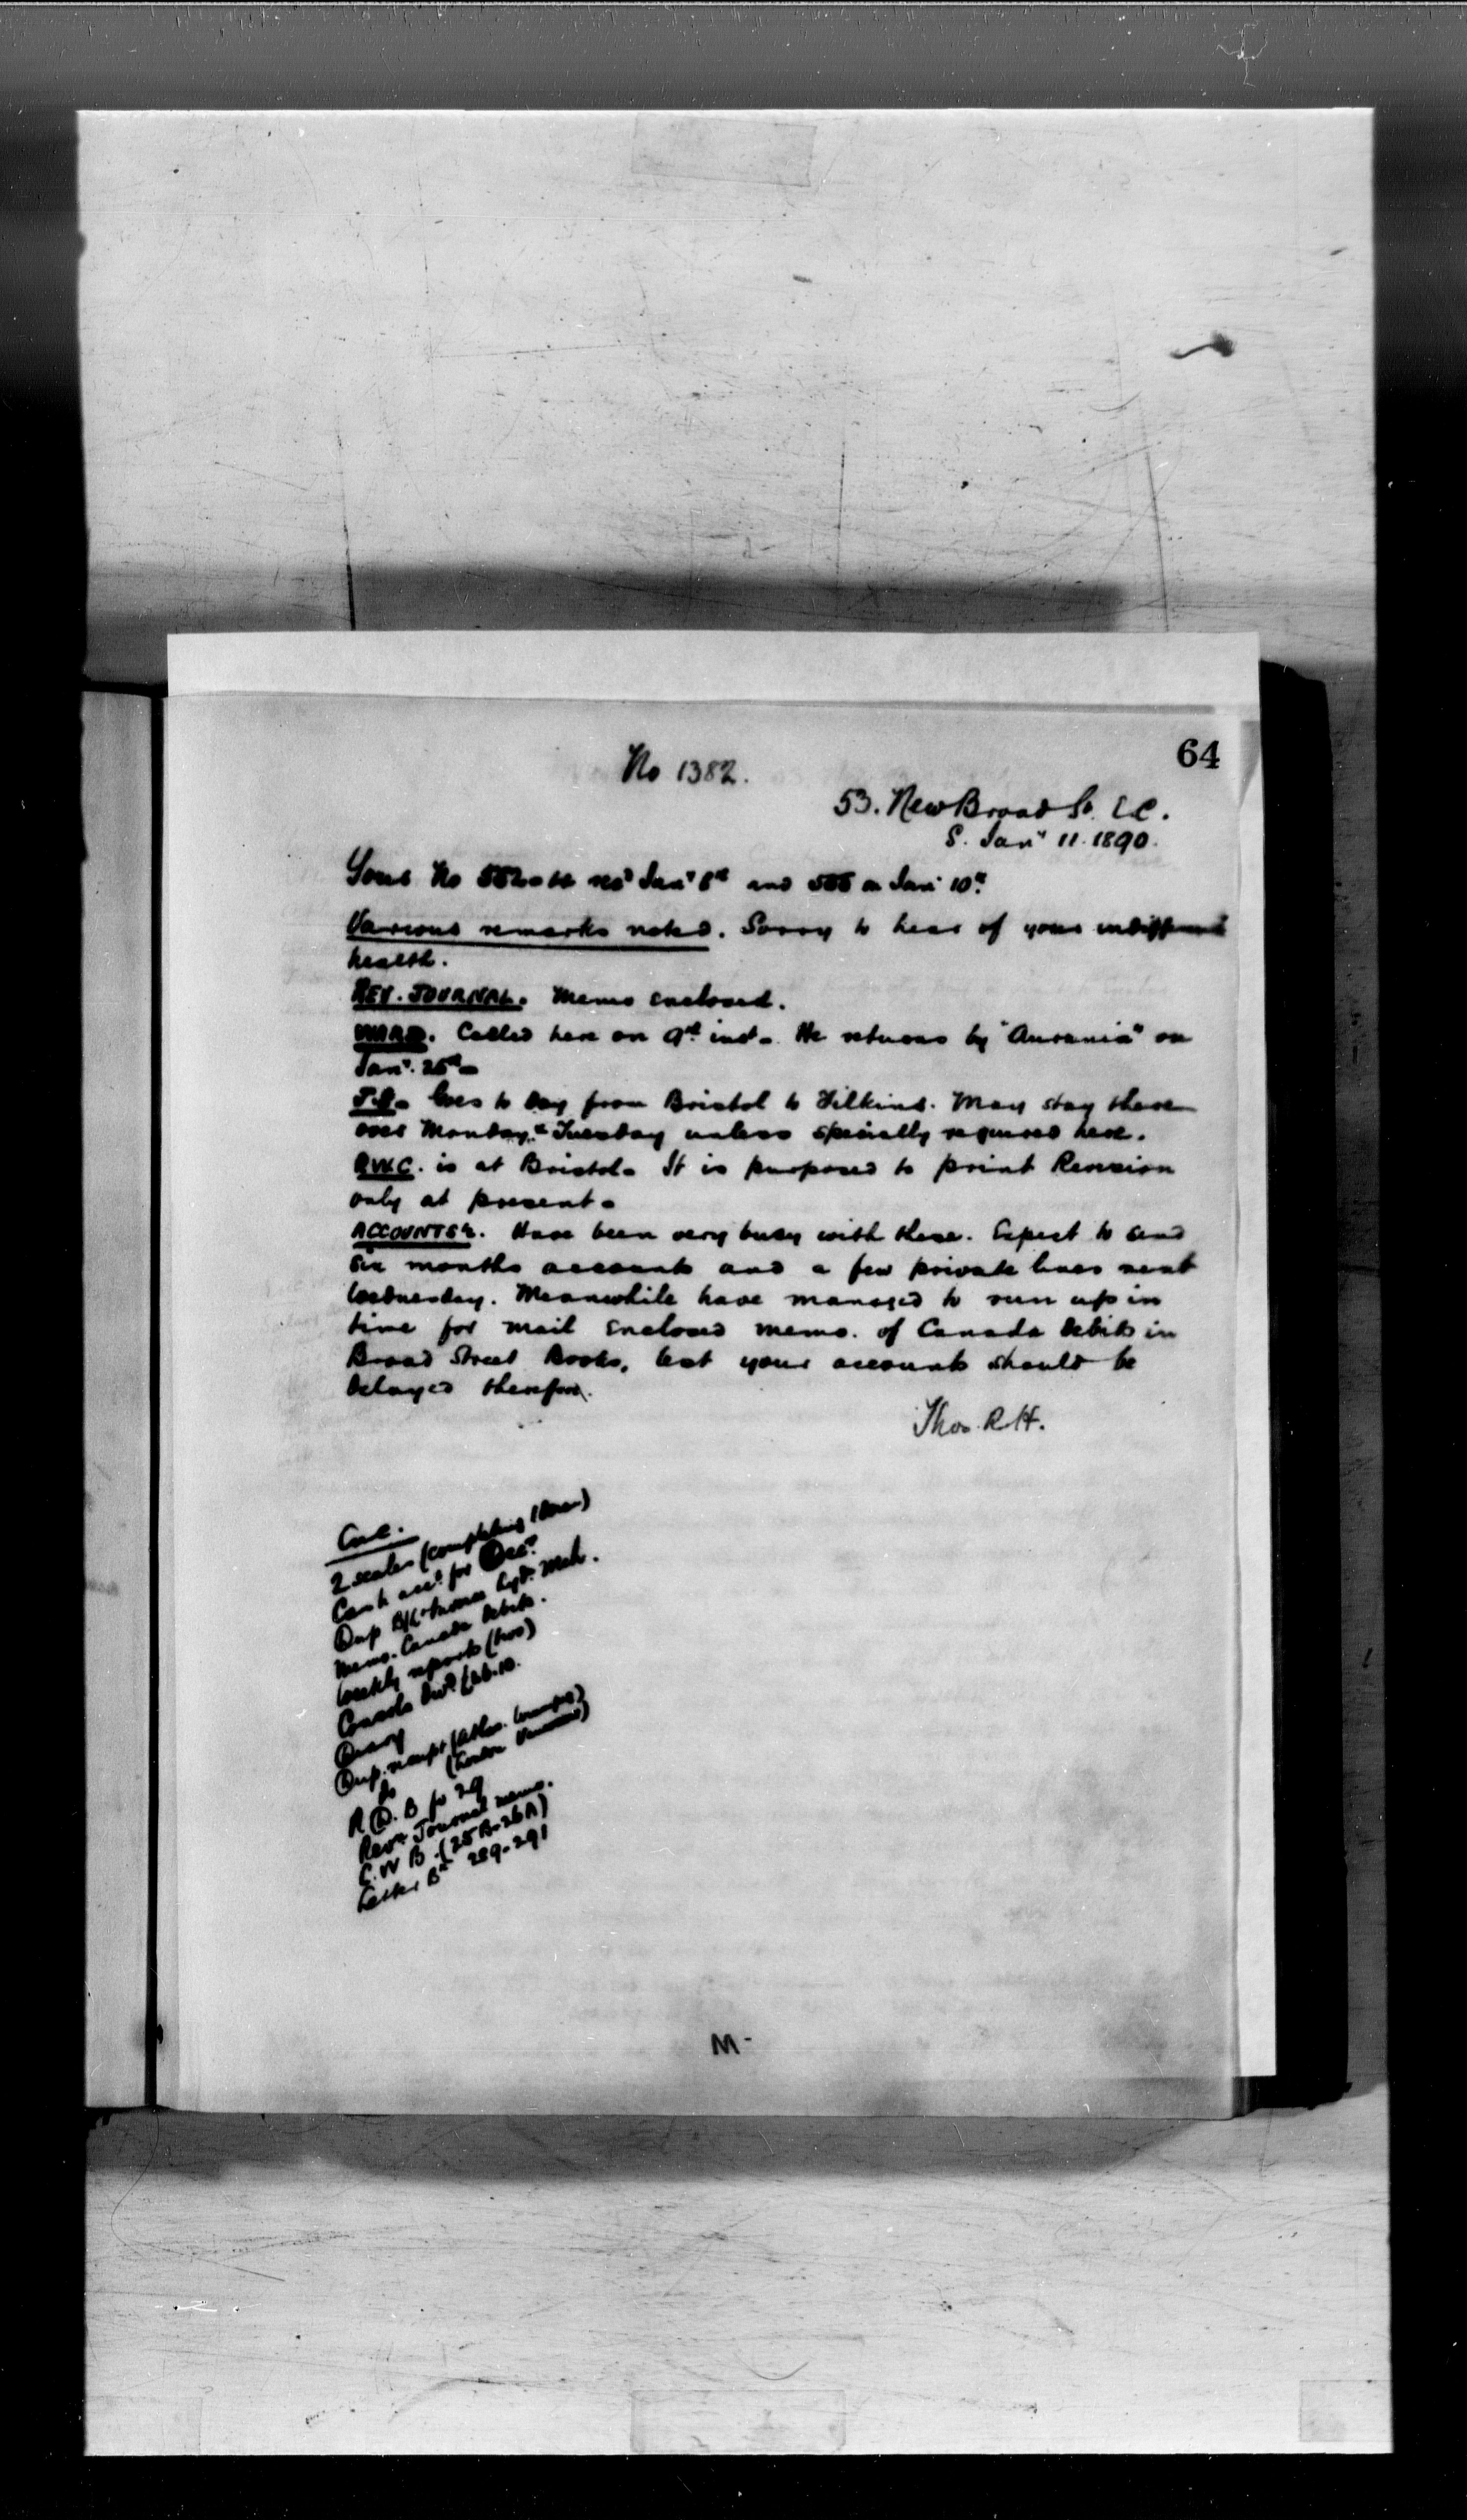 64
No 1382.
53. New Broad St. E.C.
S. Jany 11. 1890.
Yours No rec'd Jany 8th and on Jany 10th.
Various remarks noted. Sorry to hear of your indifferent
health.
REV. JOURNAL. Memo enclosed.
WARD. Called here on 9th inst. He returns by "Aurania" on
Jany. 25th
Goes to day from Bristol to Filkins. May stay there
over Monday & Tuesday unless specially required here.
R.W.C. is at Bristol. It is purposed to print Revision
only at present.
ACCOUNTS &c. Have been very busy with these. Expect to send
six months accounts and a few private lines next
Wednesday. Meanwhile have managed to run up in
time for mail enclosed memo. of Canada Debits in
Broad Street Books, lest your accounts should be
delayed therefor.
Thos. R. H.
Enc.
2 scales (completing
Cash acct. for Decr.
Dup B/L
Memo. Canada Debits.
Weekly reports (two)
Diary
Dup. receipt
do
R.D.B fo 29
Revn Journal memo.
C.W B. (25A-26A)
Letter Bk 289-291
M-